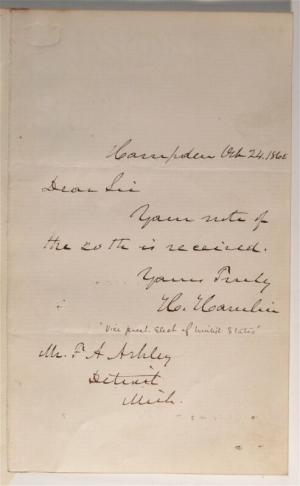 Hampden Oct 24. 1860
Dear Sir
Your note of
the 20th is received.
Yours Truly
H. Hamlin
"Vice prest. Elect of United States"
Mr. F A Ashley
Detroit
Mich.